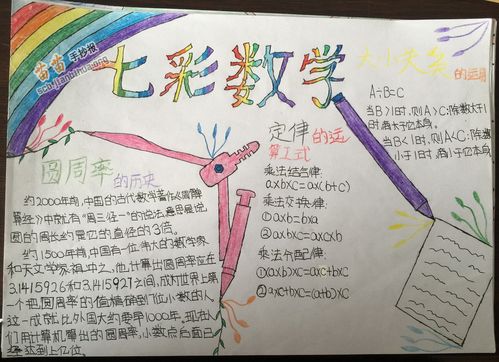 苗苗手抄报
sc.jianbihua.org
七彩数学
大小关系的运用
A÷B=C
当B>1时,则A>C;除数大于1
时,商小于它本身。
当B<1时,则A<C;除数
小于1时,商大于它本身
定律的运
算工式
乘法结合律:
a×b×c=a×(b+c)
乘法交换律:
①a×b=b×a
②a×b×c=a×c×b
乘法分配律:
①(a±b)×c=a×c±b×c
②a×c±b×c=(a±b)×c
圆周率的历史
约2000年前,中国的古代数学著作《周髀
算经》中就有“周三径一”的说法,意思是说
圆的周长约是它的直径的3倍。
约1500年前,中国有一位伟大的数学家
和天文学家祖冲之。他计算出圆周率应在
3.1415926和3.1415927之间,成为世界上第
一个把圆周率的值精确到7位小数的人。
这一成就比外国大约要早1000年,现在人
们用计算机算出的圆周率,小数点后面已
经达到上亿位。